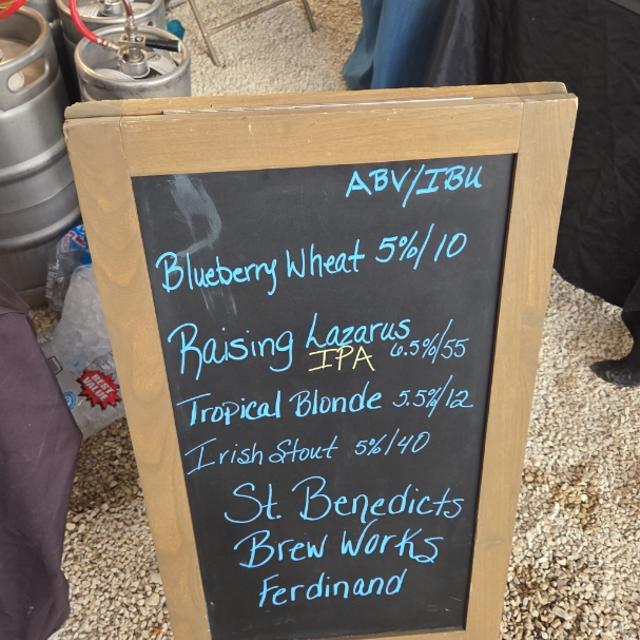 ABV/IBU
Blueberry Wheat 5%/10
Raising Lazarus
IPA 6.5%/55
Tropical Blonde 5.5%/12
Irish Stout 5%/40
St. Benedicts
Brew Works
Ferdinand
BEST VALUE